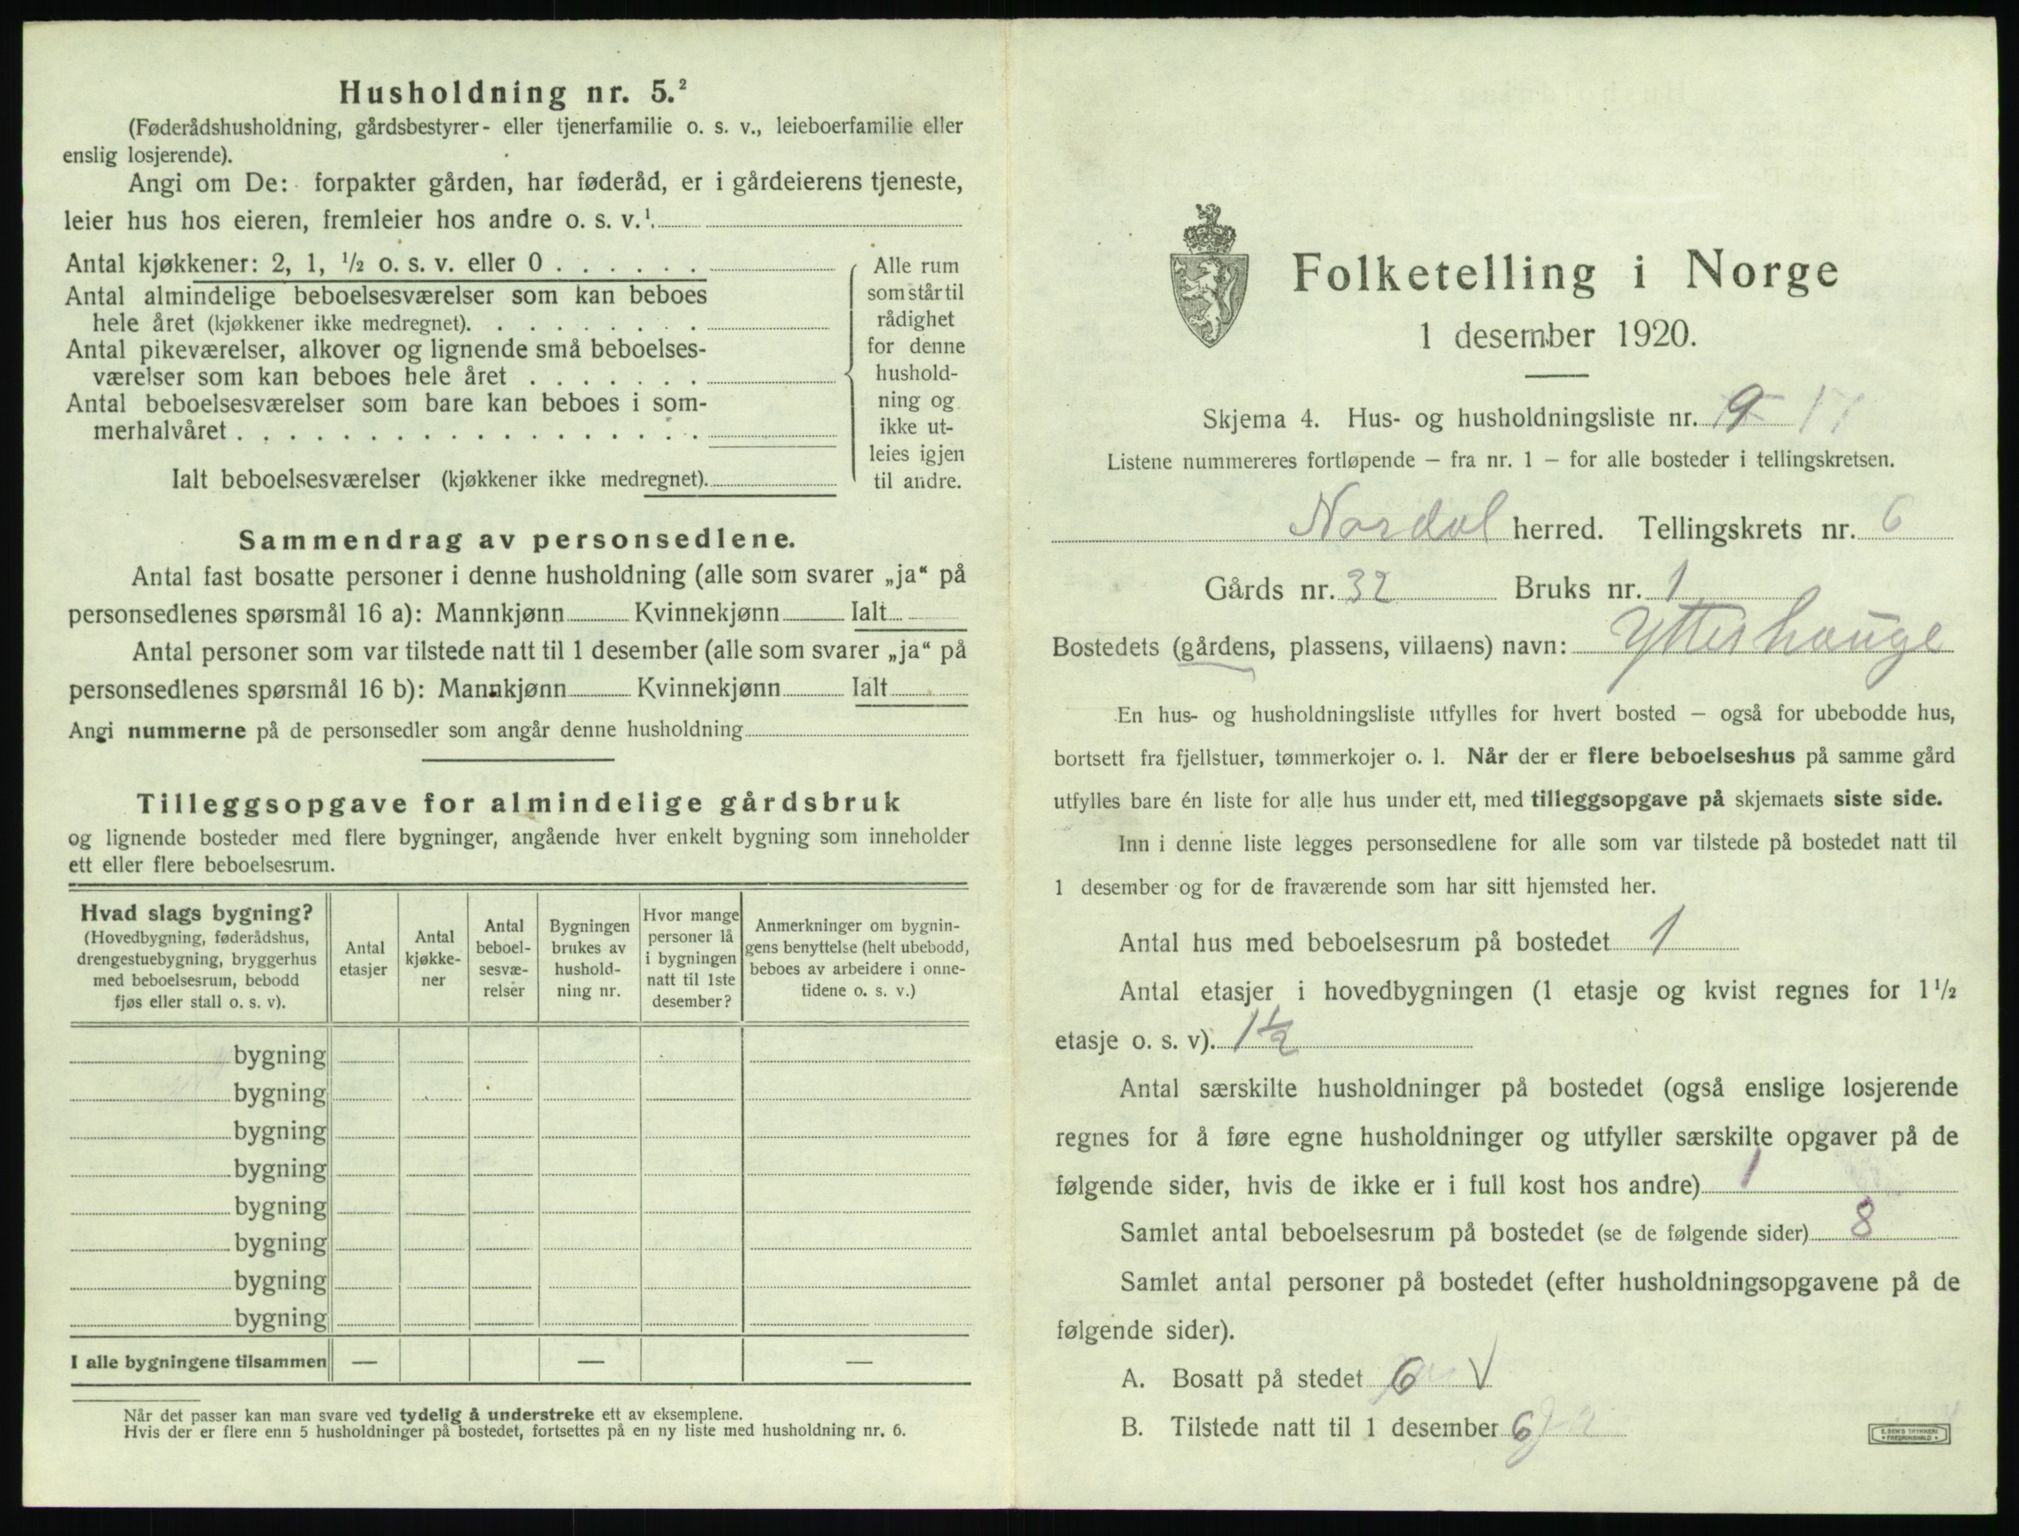 Husholdning nr. 5.²
(Føderådshusholdning, gårdsbestyrer- eller tjenerfamilie o. s. v., leieboerfamilie eller
enslig losjerende).
Angi om De: forpakter gården, har føderåd, er i gårdeierens tjeneste,
leier hus hos eieren, fremleier hos andre o. s. v.¹.
Antal kjøkkener: 2, 1, ½ o. s. v. eller 0 . . . . . .
Antal almindelige beboelsesværelser som kan beboes
hele året (kjøkkener ikke medregnet). . . . . . . . .
Antal pikeværelser, alkover og lignende små beboelses-
værelser som kan beboes hele året . . . . . . .
Antal beboelsesværelser som bare kan beboes i som-
merhalvåret . . . . . . . . . . . . . . . . . .
Ialt beboelsesværelser (kjøkkener ikke medregnet).
Alle rum
som står til
rådighet
for denne
hushold-
ning og
ikke ut-
leies igjen
til andre.
Sammendrag av personsedlene.
Antal fast bosatte personer i denne husholdning (alle som svarer „ja“ på
personsedlenes spørsmål 16 a): Mannkjønn Kvinnekjønn Ialt
Antal personer som var tilstede natt til 1 desember (alle som svarer „ja“ på
personsedlenes spørsmål 16 b): Mannkjønn Kvinnekjønn Ialt
Angi nummerne på de personsedler som angår denne husholdning
Tilleggsopgave for almindelige gårdsbruk
og lignende bosteder med flere bygninger, angående hver enkelt bygning som inneholder
ett eller flere beboelsesrum.
Hvad slags bygning?
(Hovedbygning, føderådshus,
drengestuebygning, bryggerhus
med beboelsesrum, bebodd
fjøs eller stall o. s. v).
Antal
etasjer
Antal
kjøkke-
ner
Antal
beboel-
sesvæ-
relser
Bygningen
brukes av
hushold-
ning nr.
Hvor mange
personer lå
i bygningen
natt til 1ste
desember?
Anmerkninger om bygnin-
gens benyttelse (helt ubebodd,
beboes av arbeidere i onne-
tidene o. s. v.)
bygning
bygning
bygning
bygning
bygning
bygning
bygning
bygning
I alle bygningene tilsammen — — —
Når det passer kan man svare ved tydelig å understreke ett av eksemplene.
Hvis der er flere enn 5 husholdninger på bostedet, fortsettes på en ny liste med husholdning nr. 6.
Folketelling i Norge
1 desember 1920.
Skjema 4. Hus- og husholdningsliste nr. 9 17
Listene nummereres fortløpende – fra nr. 1 – for alle bosteder i tellingskretsen.
Nordal herred. Tellingskrets nr. 6
Gårds nr. 32 Bruks nr. 1
Bostedets (gårdens, plassens, villaens) navn: Ytterhauge
En hus- og husholdningsliste utfylles for hvert bosted – også for ubebodde hus,
bortsett fra fjellstuer, tømmerkojer o. l. Når der er flere beboelseshus på samme gård
utfylles bare én liste for alle hus under ett, med tilleggsopgave på skjemaets siste side.
Inn i denne liste legges personsedlene for alle som var tilstede på bostedet natt til
1 desember og for de fraværende som har sitt hjemsted her.
Antal hus med beboelsesrum på bostedet 1
Antal etasjer i hovedbygningen (1 etasje og kvist regnes for 1½
etasje o. s. v). 1½
Antal særskilte husholdninger på bostedet (også enslige losjerende
regnes for å føre egne husholdninger og utfyller særskilte opgaver på de
følgende sider, hvis de ikke er i full kost hos andre) 1
Samlet antal beboelsesrum på bostedet (se de følgende sider) 8
Samlet antal personer på bostedet (efter husholdningsopgavene på de
følgende sider).
A. Bosatt på stedet 6 V
B. Tilstede natt til 1 desember 6